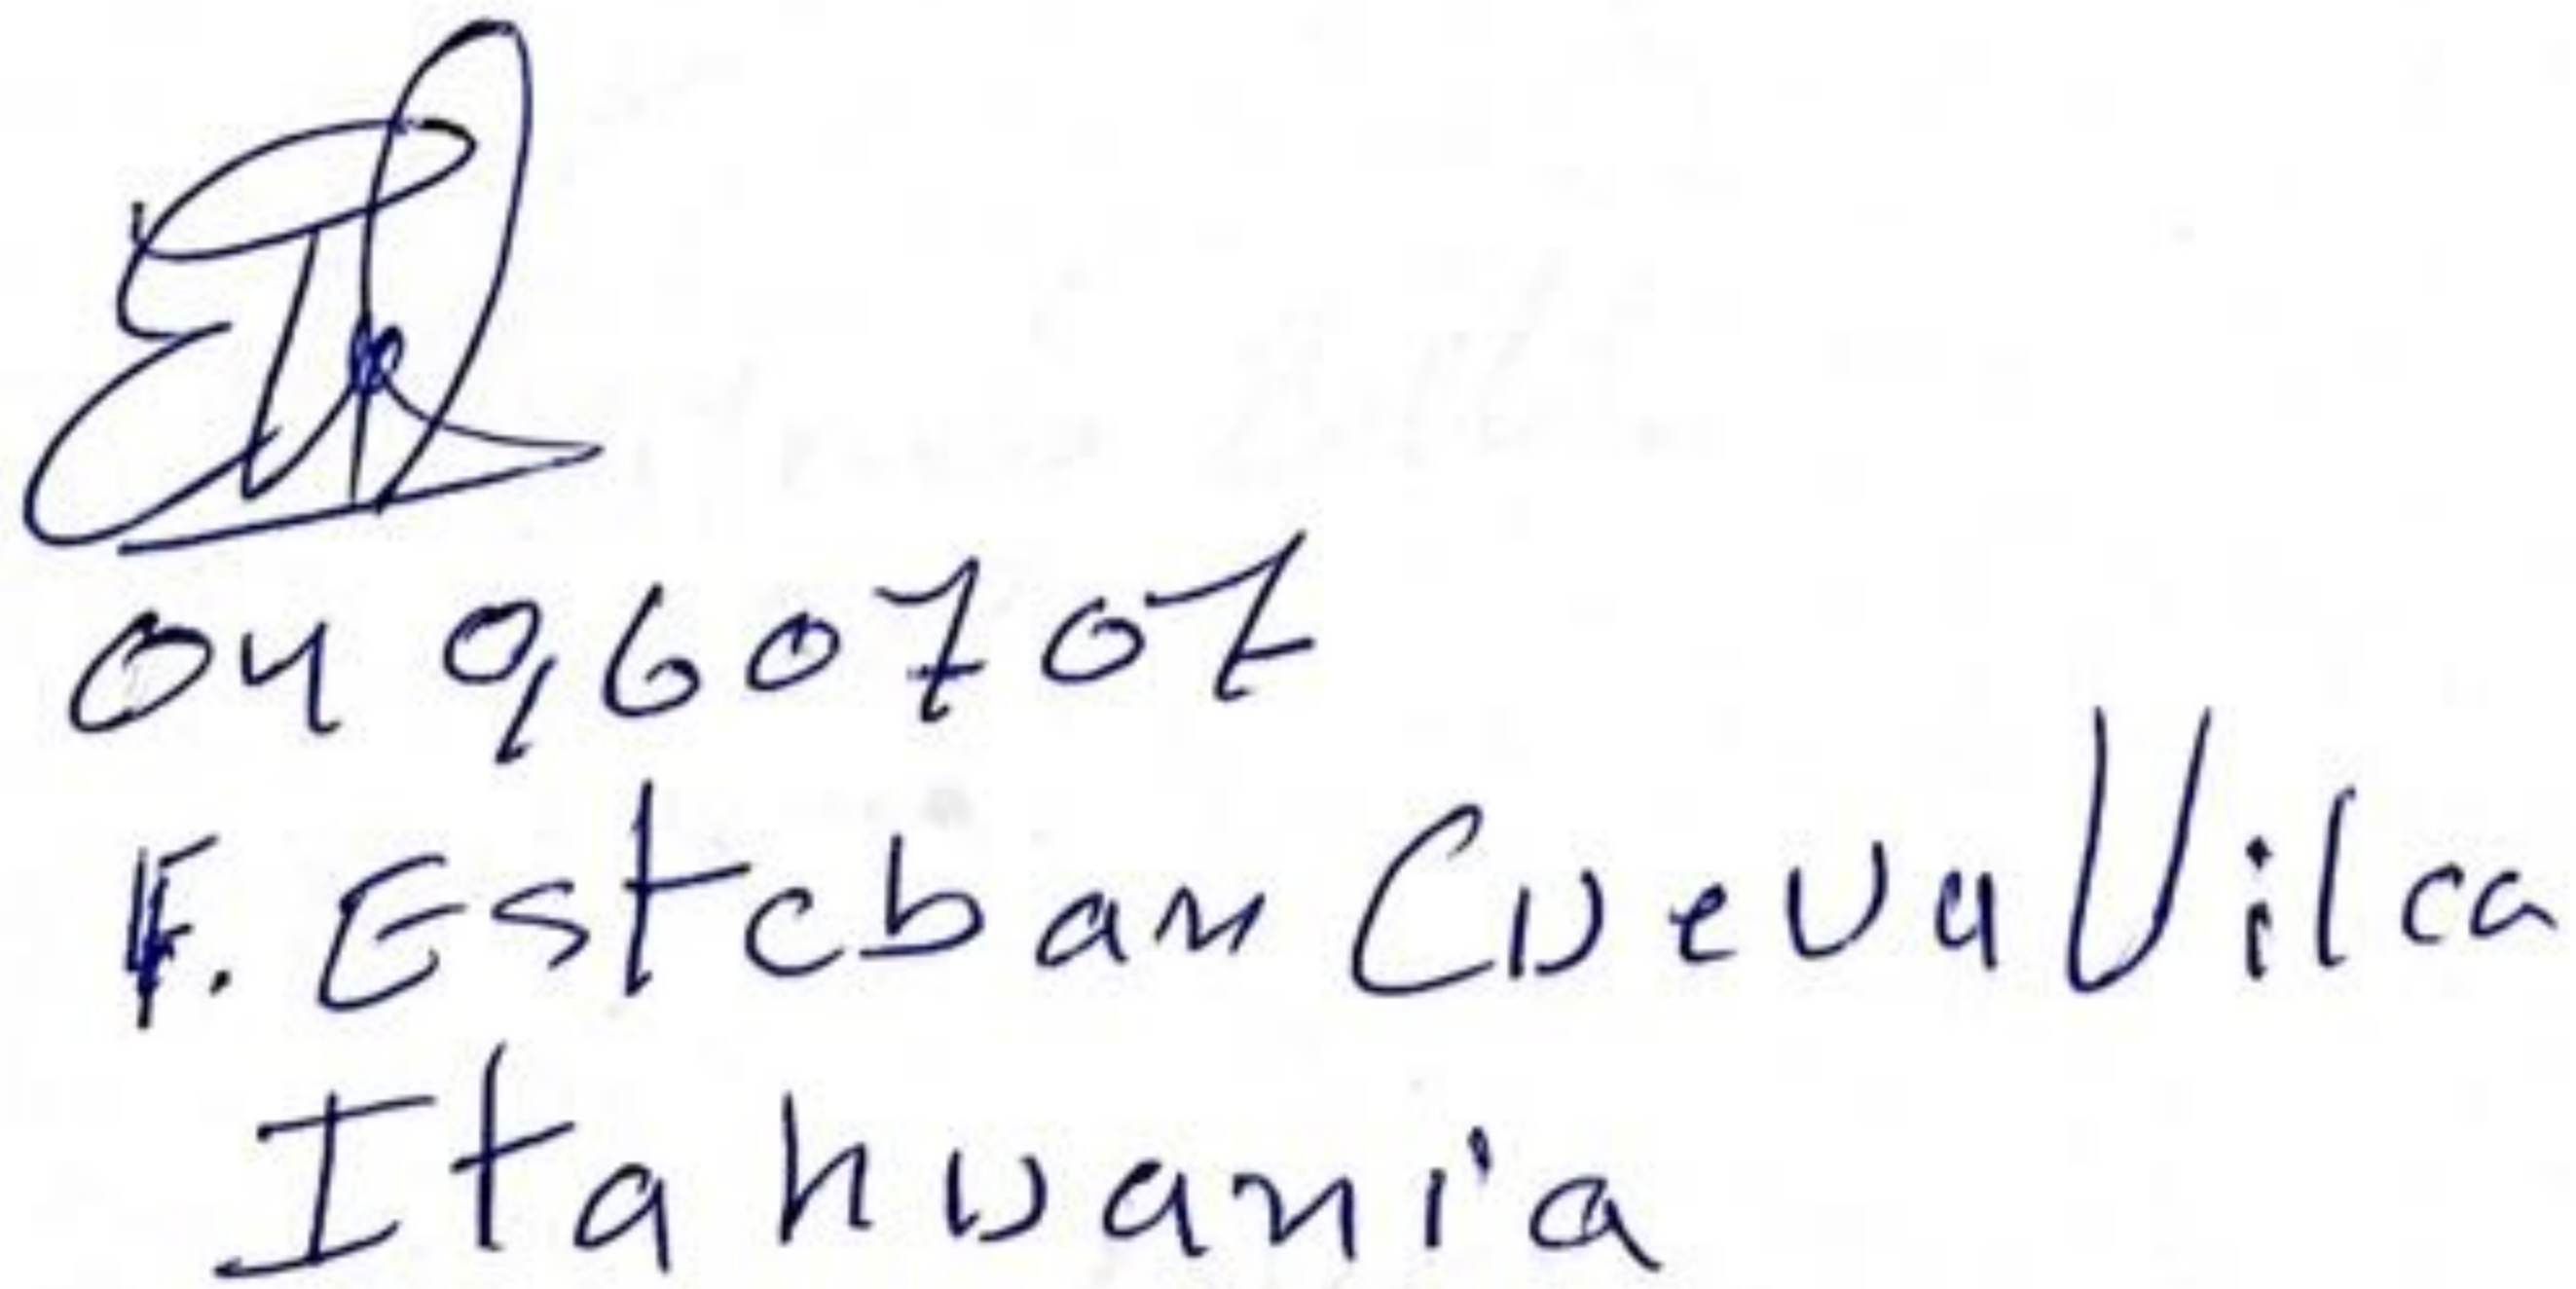 04960707
F. Esteban Cueva Vilca
Itahuanía